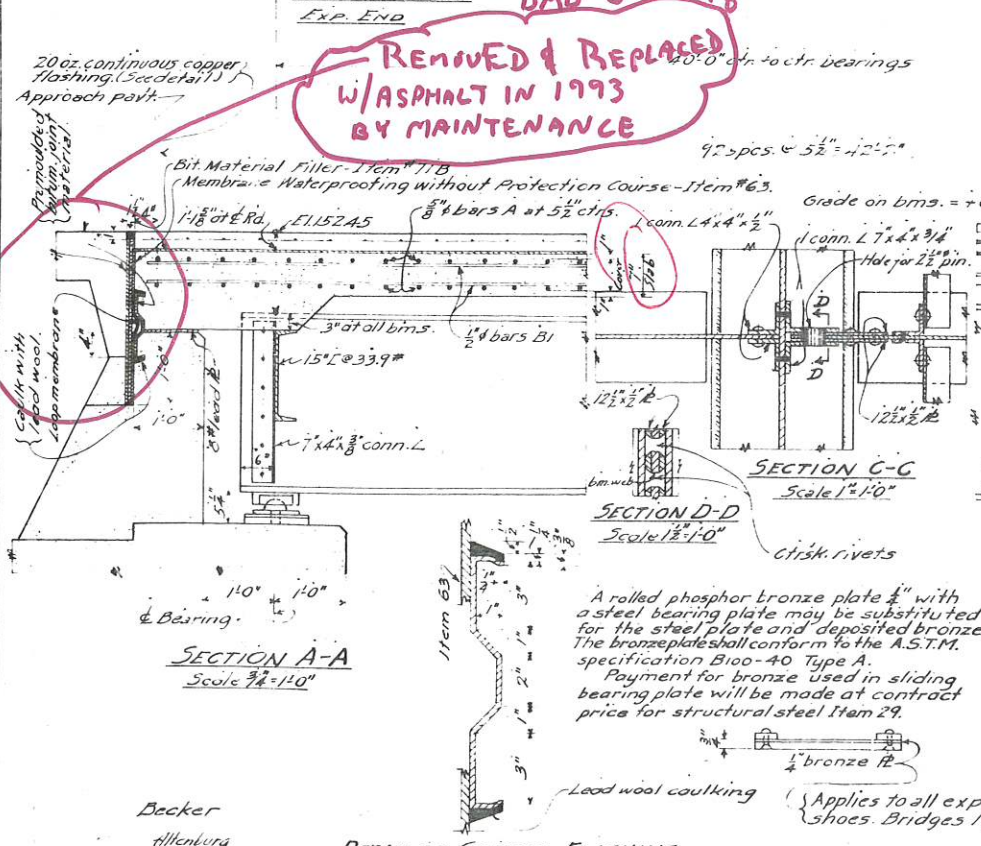 EXP. END
REMOVED & REPLACED
W/ASPHALT IN 1993
BY MAINTENANCE
20 oz. continuous copper
flashing. (See detail)
Approach pav't.
40'-0" ctr. to ctr. bearings
92 spcs. @ 5½" = 42'-2"
Premoulded
bitum. joint
material.
Bit. Material Filler - Item #71B
Membrane Waterproofing without Protection Course - Item #63.
1'-1⅝" at ℄ Rd.
El. 152.45
⅝" ϕ bars A at 5½" ctrs.
1 conn. L 4"x4"x½"
Grade on bms. = +
1 conn. L 7"x4"x¾"
Hole for 2½" pin.
1"
Slab
4"
3" at all bms.
½" ϕ bars B1
15" [ @ 33.9#
D
D
Caulk with
lead wool.
Loop membrane
1'-0"
1'-0"
8# lead ℙ
7"x4"x⅜" conn. L
6"
12½"x½" ℙ
12½"x½" ℙ
bm. web
SECTION C-C
Scale 1"=1'-0"
SECTION D-D
Scale 1½"=1'-0"
Ctrsk. rivets
5¼"
1'-0"
1'-0"
℄ Bearing.
SECTION A-A
Scale ¾"=1'-0"
Item 63
½"
1¼"
⅜"
1"
3"
1"
2"
1"
3"
Lead wool caulking
A rolled phosphor bronze plate ¼" with
a steel bearing plate may be substituted
for the steel plate and deposited bronze
The bronze plate shall conform to the A.S.T.M.
specification B100-40 Type A.
Payment for bronze used in sliding
bearing plate will be made at contract
price for structural steel Item 29.
¼" bronze ℙ
Applies to all exp
shoes. Bridges 1
Becker
Altenburg